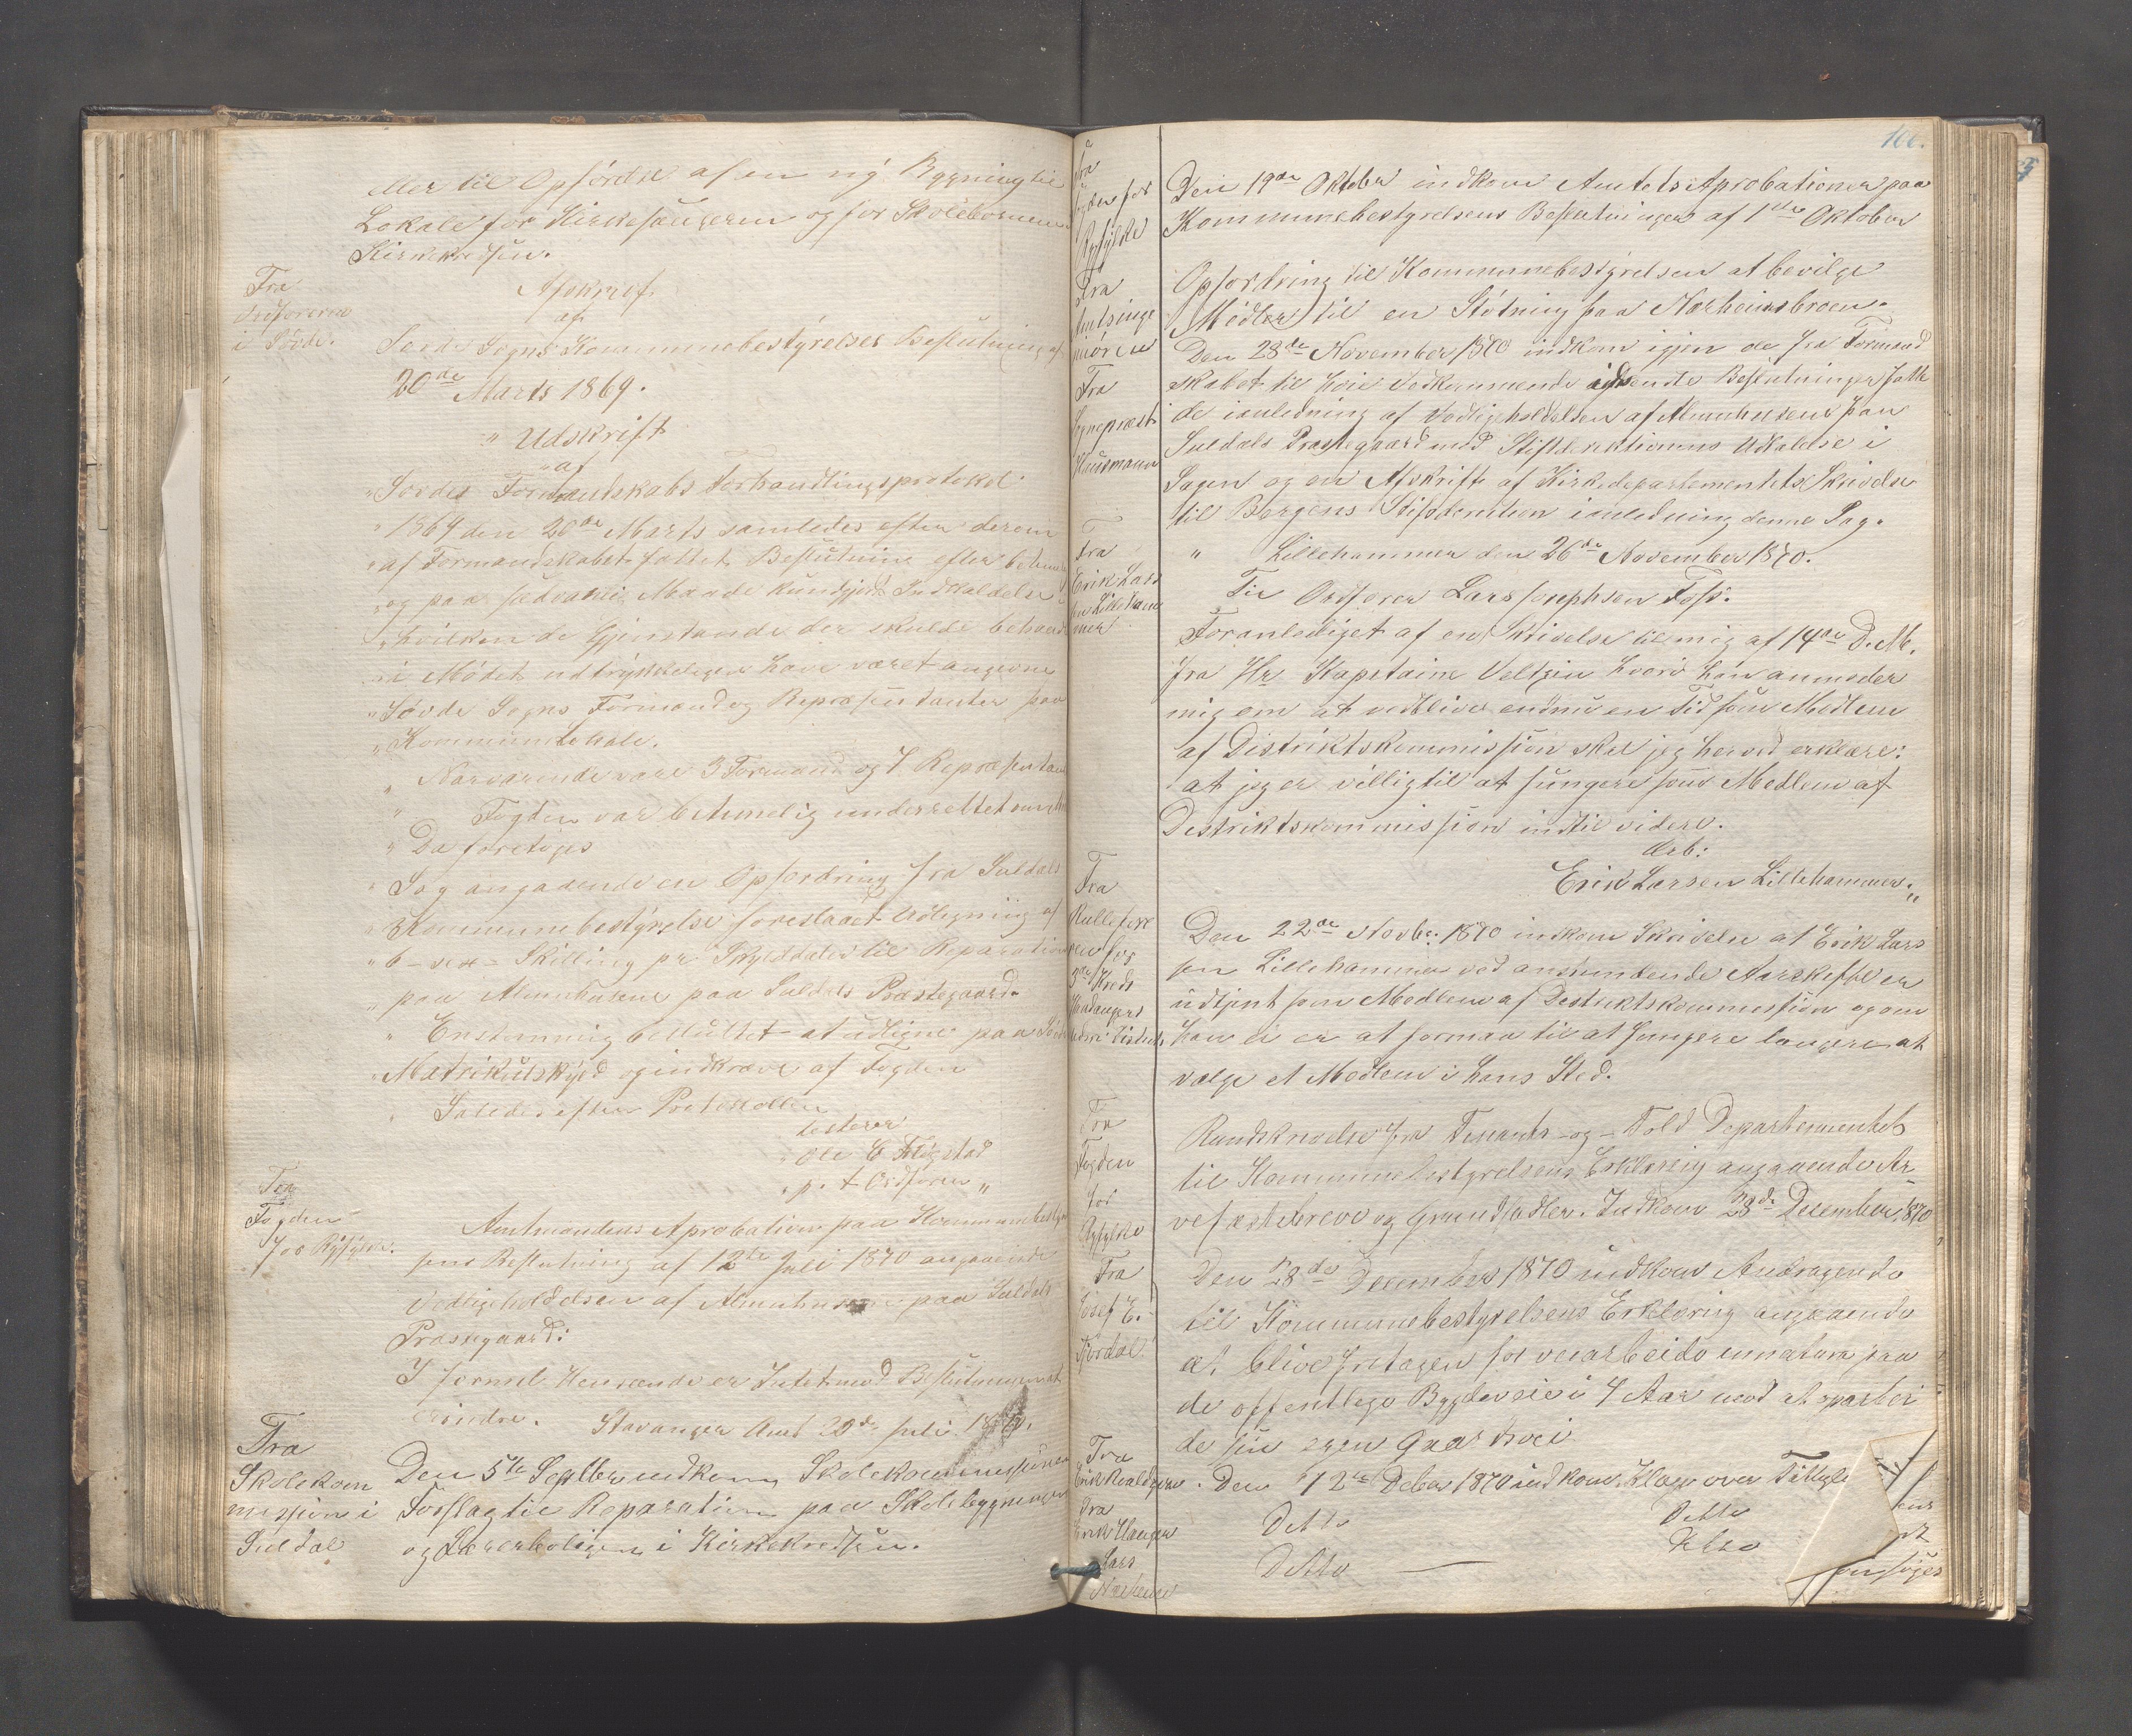 eller til Opførelse af en ny Bygning til
Lokale for Kirkesangeren og for Skolebørnene
Kirkekredsen.
Fra
Ordføreren
i Søvde.
Afskrift
af
Søvde Sogns Kommunebestyrelses Beslutning af
20de Marts 1869.
" Udskrift
" af
" Søvdes Formandskabs Forhandlingsprotokol
" 1869 den 20de Marts samledes efter derom
" af Formandskabet fattet Beslutning efter betimelig
" og paa sædvanlig Maade kundgjort Indkaldelse
" hvilken de Gjenstande der skulde behandles
" i Mødet udtrykkeligen have været angivne
" Søvde Sogns Formænd og Repræsentanter paa
" Kommunelokale.
" Nærværende vare 3 Formænd og 7 Repræsentanter
" Fogden var betimelig underrettet om
" Da foretoges
" Sag angaaende en Opfordring fra Suldals
" Kommunebestyrelse foreslaaet Udligning af
" 6 - sex - Skilling pr Skylddaler til Reparation
" paa Almuhusene paa Suldals Præstegaard.
" Enstemmig besluttet at udligne paa Søvde
" Matrikulskyld og indkræve af Fogden
" Saledes efter Protokollen
testerer
" Ole E Fligstad
" p. t Ordfører "
Fra
Fogden
for Ryfylke.
Amtmandens Aprobation paa Kommunebestyrel
sens Beslutning af 12te Juli 1870 angaaende
Vedligeholdelsen af Almuhusene paa Suldals
Præstegaard:
I formel Henseende er Intet mod Beslutningen at
erindre. Stavanger Amt 20de Juli 1870.
Fra
Skolekom
missjon i
Suldal
Den 5te Septber indkom Skolekommissionens
Forslag til Reparation paa Skolebygningen
og Lærerboligen i Kirkekredsen.
106.
Fra
Fogden for
Ryfylke
Den 19de Oktober indkom Amtets Aprobationer paa
Kommunebestyrelsens Beslutninger af 1ste Oktober
Fra
Amtsinge
niøren
Opfordring til Kommunebestyrelsen at bevilge
Midler til en Støtning paa Nærheimsbroen.
Fra
Sognepræst
Hausmann
Den 28de November 1870 indkom igjen de fra Formand
skabet til høie Vedkommende indsendte Beslutninger fatte
de i anledning af Vedligeholdelsen af Almuhusene paa
Suldals Præstegaard med Stiftdirektionens Udtalelse i
Sagen og en Afskrift af Kirkedepartementets Skrivelse
til Bergens Stiftdirektion i anledning denne Sag.
Fra
Erik Lars
sen Lilleham
mer
" Lillehammer den 26de November 1870.
Til Ordfører Lars Josephsen Foss.
Foranlediget af en Skrivelse til mig af 14de D. M.
fra Hr Kapetaine Veltzin hvori han anmoder
mig om at vedblive endnu en Tid som Medlem
af Distriktskommission skal jeg herved erklære:
at jeg er villig til at fungere som Medlem af
Distriktskommission indtil videre.
Ærb:
Erik Larsen Lillehammer. "
Fra
Rullefør
eren for
3de Kreds
Hardangers
Den 22de Novbr. 1870 indkom Skrivelse at Erik Lars
sen Lillehammer ved anstundende Aarskifte er
udtjent som Medlem af Distriktskommission og om
han ei er at formaa til at fungere længere at
vælge et Medlem i hans Sted.
Fra
Fogden
for
Ryfylke
Rundskrivelse fra Finants- og - Told Departementet
til Kommunebestyrelsens Erklæring angaaende Ar
vefæstebreve og Grundsedler. Indkom 28de December 1870
Fra
Josef E.
Fjordal
Den 28de December 1870 indkom Andragende
til Kommunebestyrelsens Erklæring angaaende
at blive fritagen for veiarbeide innatura paa
de offentlege Bygdeveie i 7 Aar mod at oparbei
de sin egen Gaardsvei
Fra
Erik
Den 12te Debr 1870 indkom Klage over
Fra
Erik Haugen
Detto
Detto
Lars
Detto